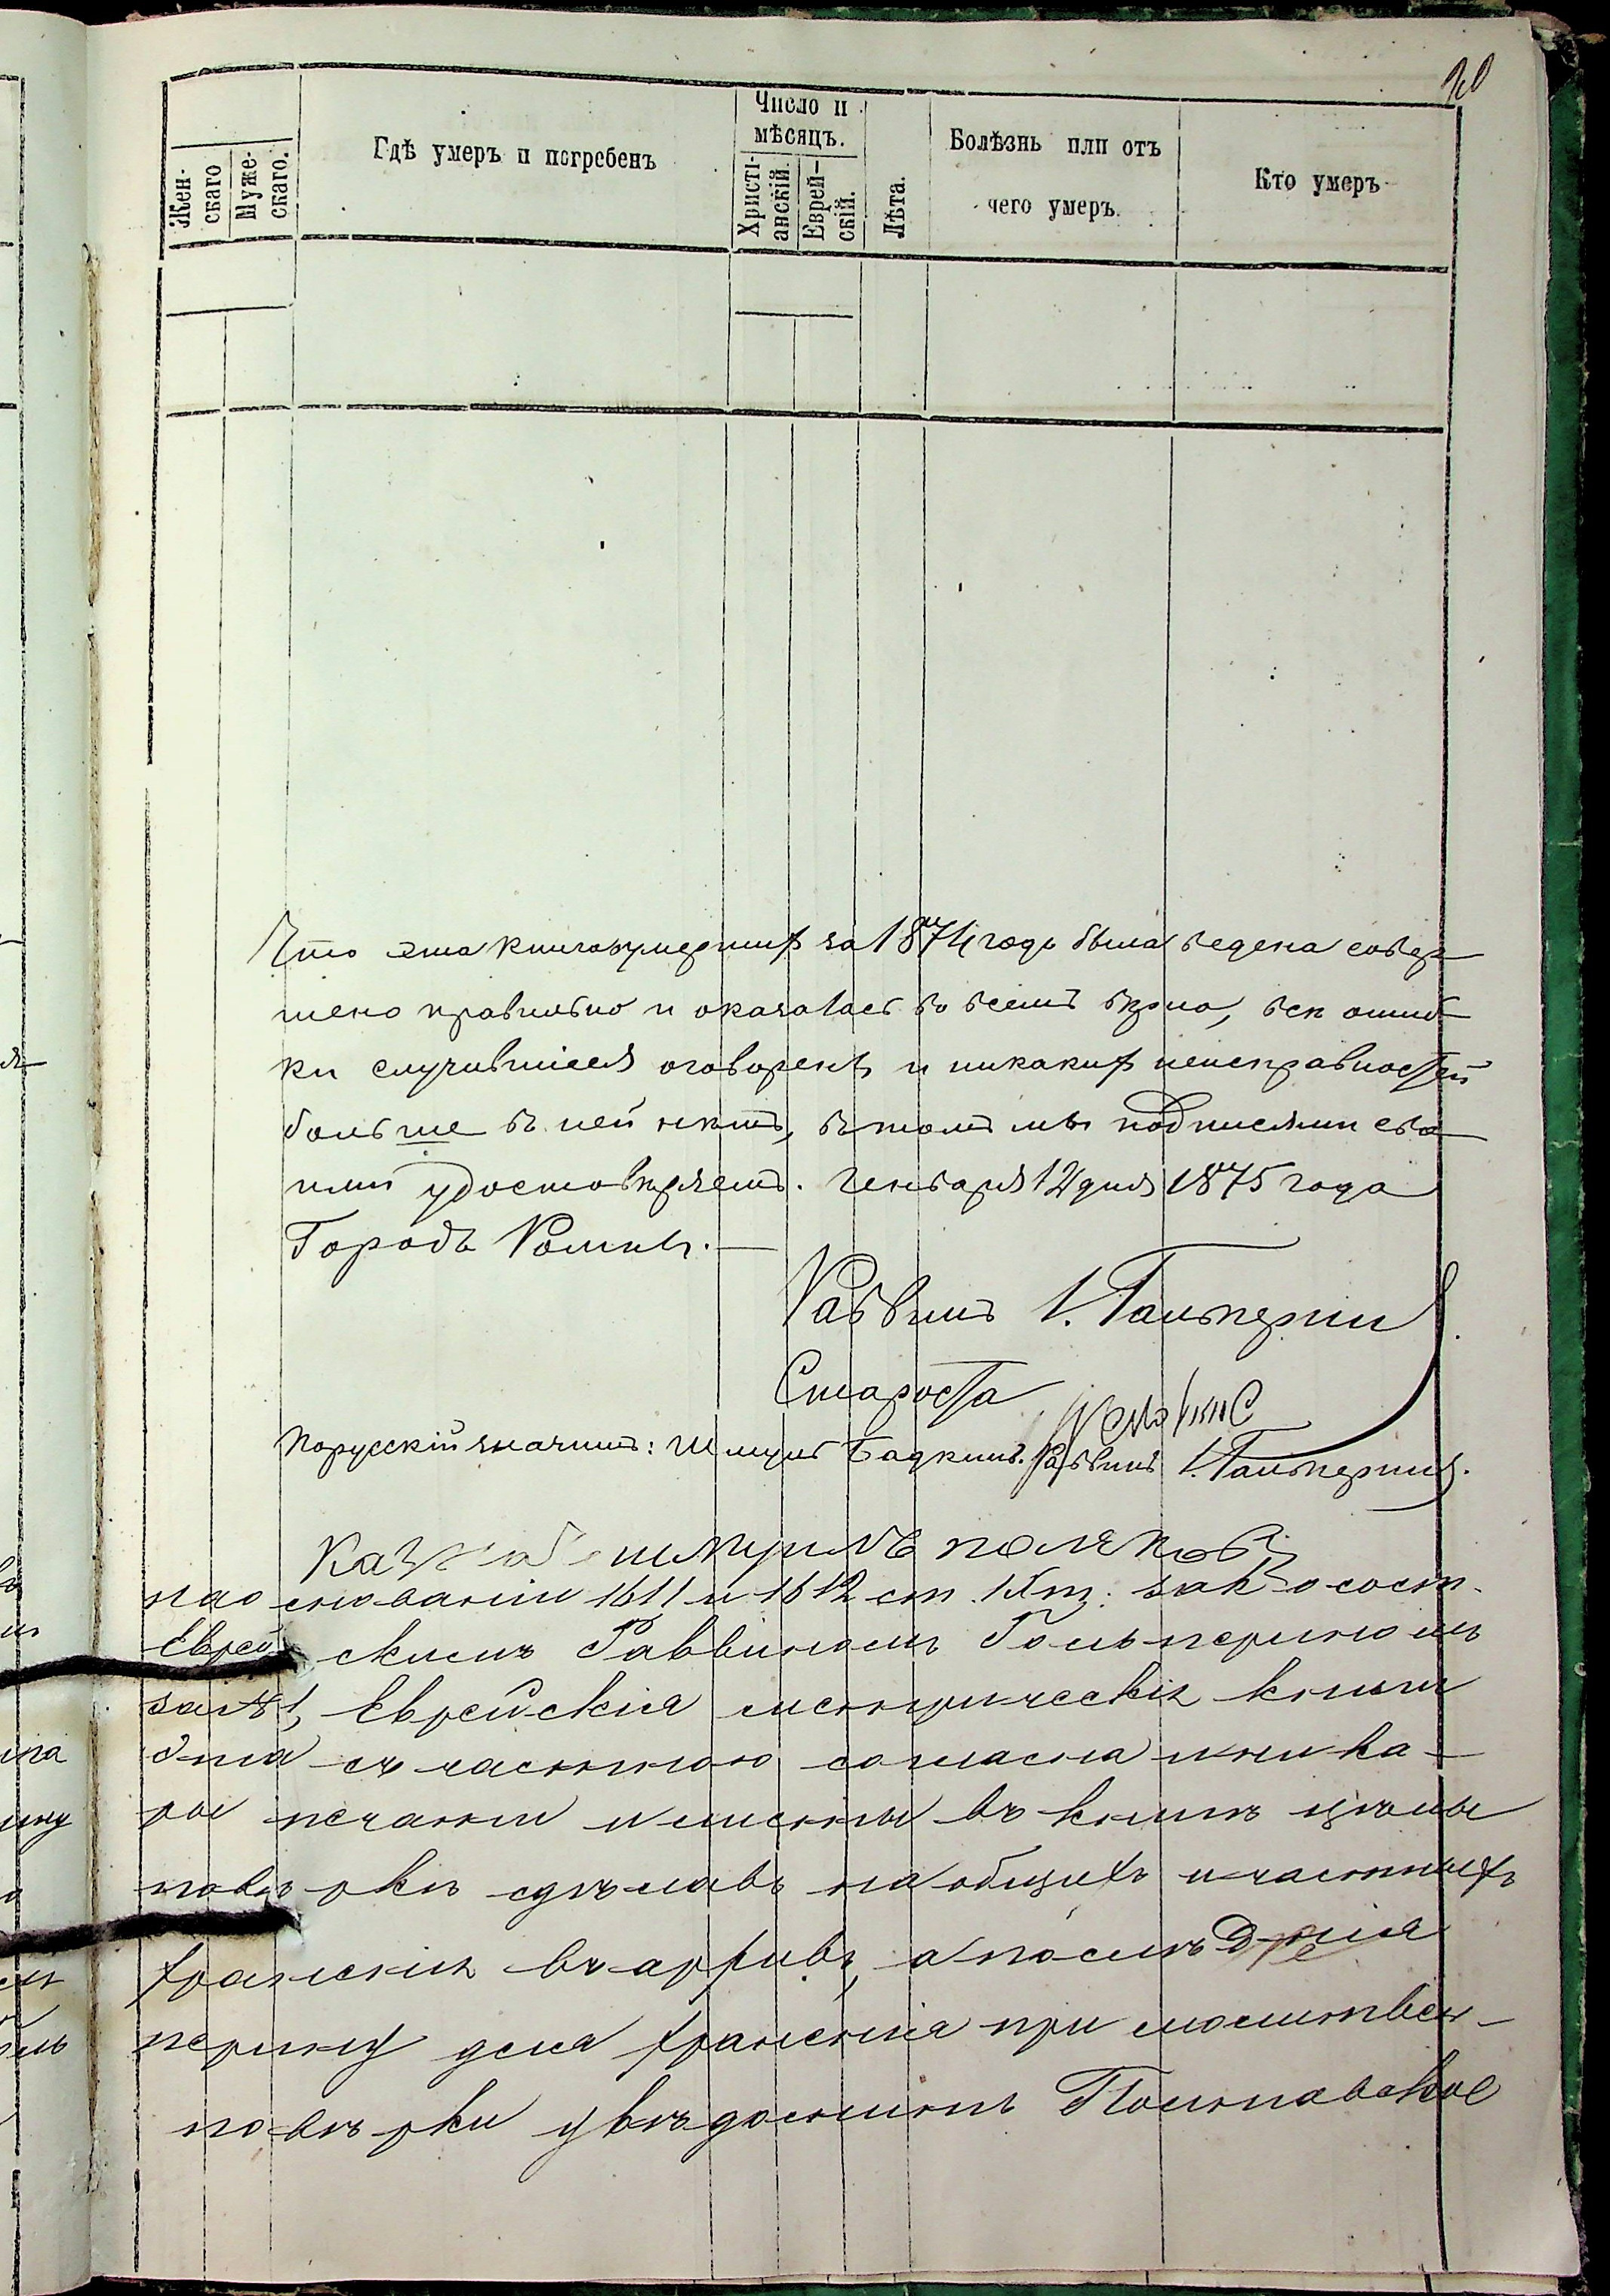 20
Жен-
скаго
Муже-
скаго.
Гдѣ умеръ и погребенъ
Число и
мѣсяцъ.
Христі-
анскій.
Еврей-
скій.
Лѣта.
Болѣзнь или отъ
чего умеръ.
Кто умеръ
Что эта книга умершихъ за 1874 годъ была ведена совер
шено правильно и оказалась во всемъ вѣрно, всѣ ошиб
ки случившіеся оговорены и никакихъ неисправностей
больше въ ней нѣтъ, въ томъ мы подписями сво
ими удостовѣряемъ. Генваря 12 дня 1875 года
Городъ Ромны.
Раввинъ І. Гальперинъ
Староста
Порусскій значитъ: Шмуль Бадкинъ. Раввинъ І. Гальперинъ.
Казначей шмуилъ поляковъ
на основаніи 1611 и 1612 ст. IX т. зак. о сост.
Еврей скимъ Раввиномъ Гальпериномъ
за № 1, Еврейскія метрическія книги
одна съ частною согласна
печати и листы въ книгѣ цѣлы
повѣрки сдѣлавъ на общихъ и частныхъ
храненія въ архивъ, а послѣдніе
перину для храненія при молитвен-
повѣрки увѣдомить Полтавское